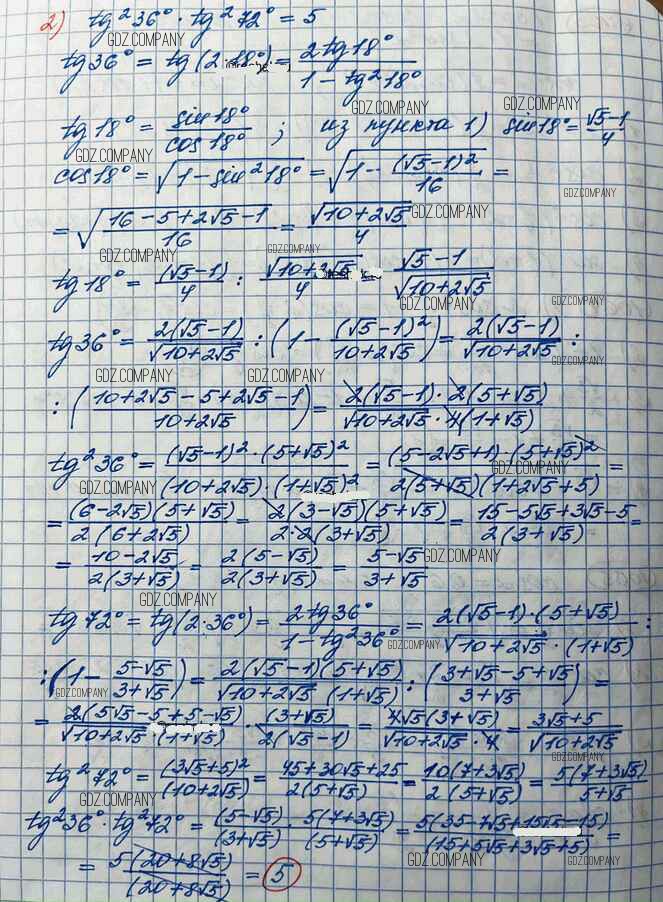 2) tg²36° · tg²72° = 5
GDZ.COMPANY
tg36° = tg(2·18°) = 2tg18° / (1 − tg²18°)
GDZ.COMPANY
GDZ.COMPANY
GDZ.COMPANY
tg18° = sin18° / cos18° ; из пункта 1) sin18° = (√5−1)/4
GDZ.COMPANY
cos18° = √(1 − sin²18°) = √(1 − (√5−1)²/16) =
GDZ.COMPANY
= √((16 − 5 + 2√5 − 1)/16) = √(10+2√5)/4
GDZ.COMPANY
GDZ.COMPANY
GDZ.COMPANY
tg18° = (√5−1)/4 : √(10+2√5)/4 = (√5−1)/√(10+2√5)
GDZ.COMPANY
GDZ.COMPANY
tg36° = 2(√5−1)/√(10+2√5) : (1 − (√5−1)²/(10+2√5)) = 2(√5−1)/√(10+2√5) :
GDZ.COMPANY
GDZ.COMPANY
GDZ.COMPANY
: ((10+2√5−5+2√5−1)/(10+2√5)) = 2(√5−1)·2(5+√5) / (√(10+2√5)·4(1+√5))
tg²36° = (√5−1)²·(5+√5)² / ((10+2√5)·(1+√5)²) = (5−2√5+1)·(5+√5)² / (2(5+√5)(1+2√5+5)) =
GDZ.COMPANY
GDZ.COMPANY
= (6−2√5)(5+√5) / (2(6+2√5)) = 2(3−√5)(5+√5) / (2·2(3+√5)) = (15−5√5+3√5−5) / (2(3+√5)) =
= (10−2√5) / (2(3+√5)) = 2(5−√5) / (2(3+√5)) = (5−√5)/(3+√5)
GDZ.COMPANY
GDZ.COMPANY
tg72° = tg(2·36°) = 2tg36° / (1−tg²36°) = 2(√5−1)·(5+√5) / (√(10+2√5)·(1+√5)) :
GDZ.COMPANY
: (1 − (5−√5)/(3+√5)) = 2(√5−1)(5+√5) / (√(10+2√5) (1+√5)) : ((3+√5−5+√5)/(3+√5)) =
GDZ.COMPANY
GDZ.COMPANY
= 2(5√5−5+5−√5) / (√(10+2√5)·(1+√5)) · (3+√5)/(2(√5−1)) = 4√5(3+√5) / (√(10+2√5)·4) = (3√5+5)/√(10+2√5)
GDZ.COMPANY
GDZ.COMPANY
tg²72° = (3√5+5)²/(10+2√5) = (45+30√5+25)/(2(5+√5)) = 10(7+3√5)/(2(5+√5)) = 5(7+3√5)/(5+√5)
GDZ.COMPANY
GDZ.COMPANY
tg²36° · tg²72° = (5−√5)/(3+√5) · 5(7+3√5)/(5+√5) = 5(35−7√5+15√5−15)/(15+5√5+3√5+5) =
GDZ.COMPANY
GDZ.COMPANY
= 5(20+8√5)/(20+8√5) = 5
GDZ.COMPANY